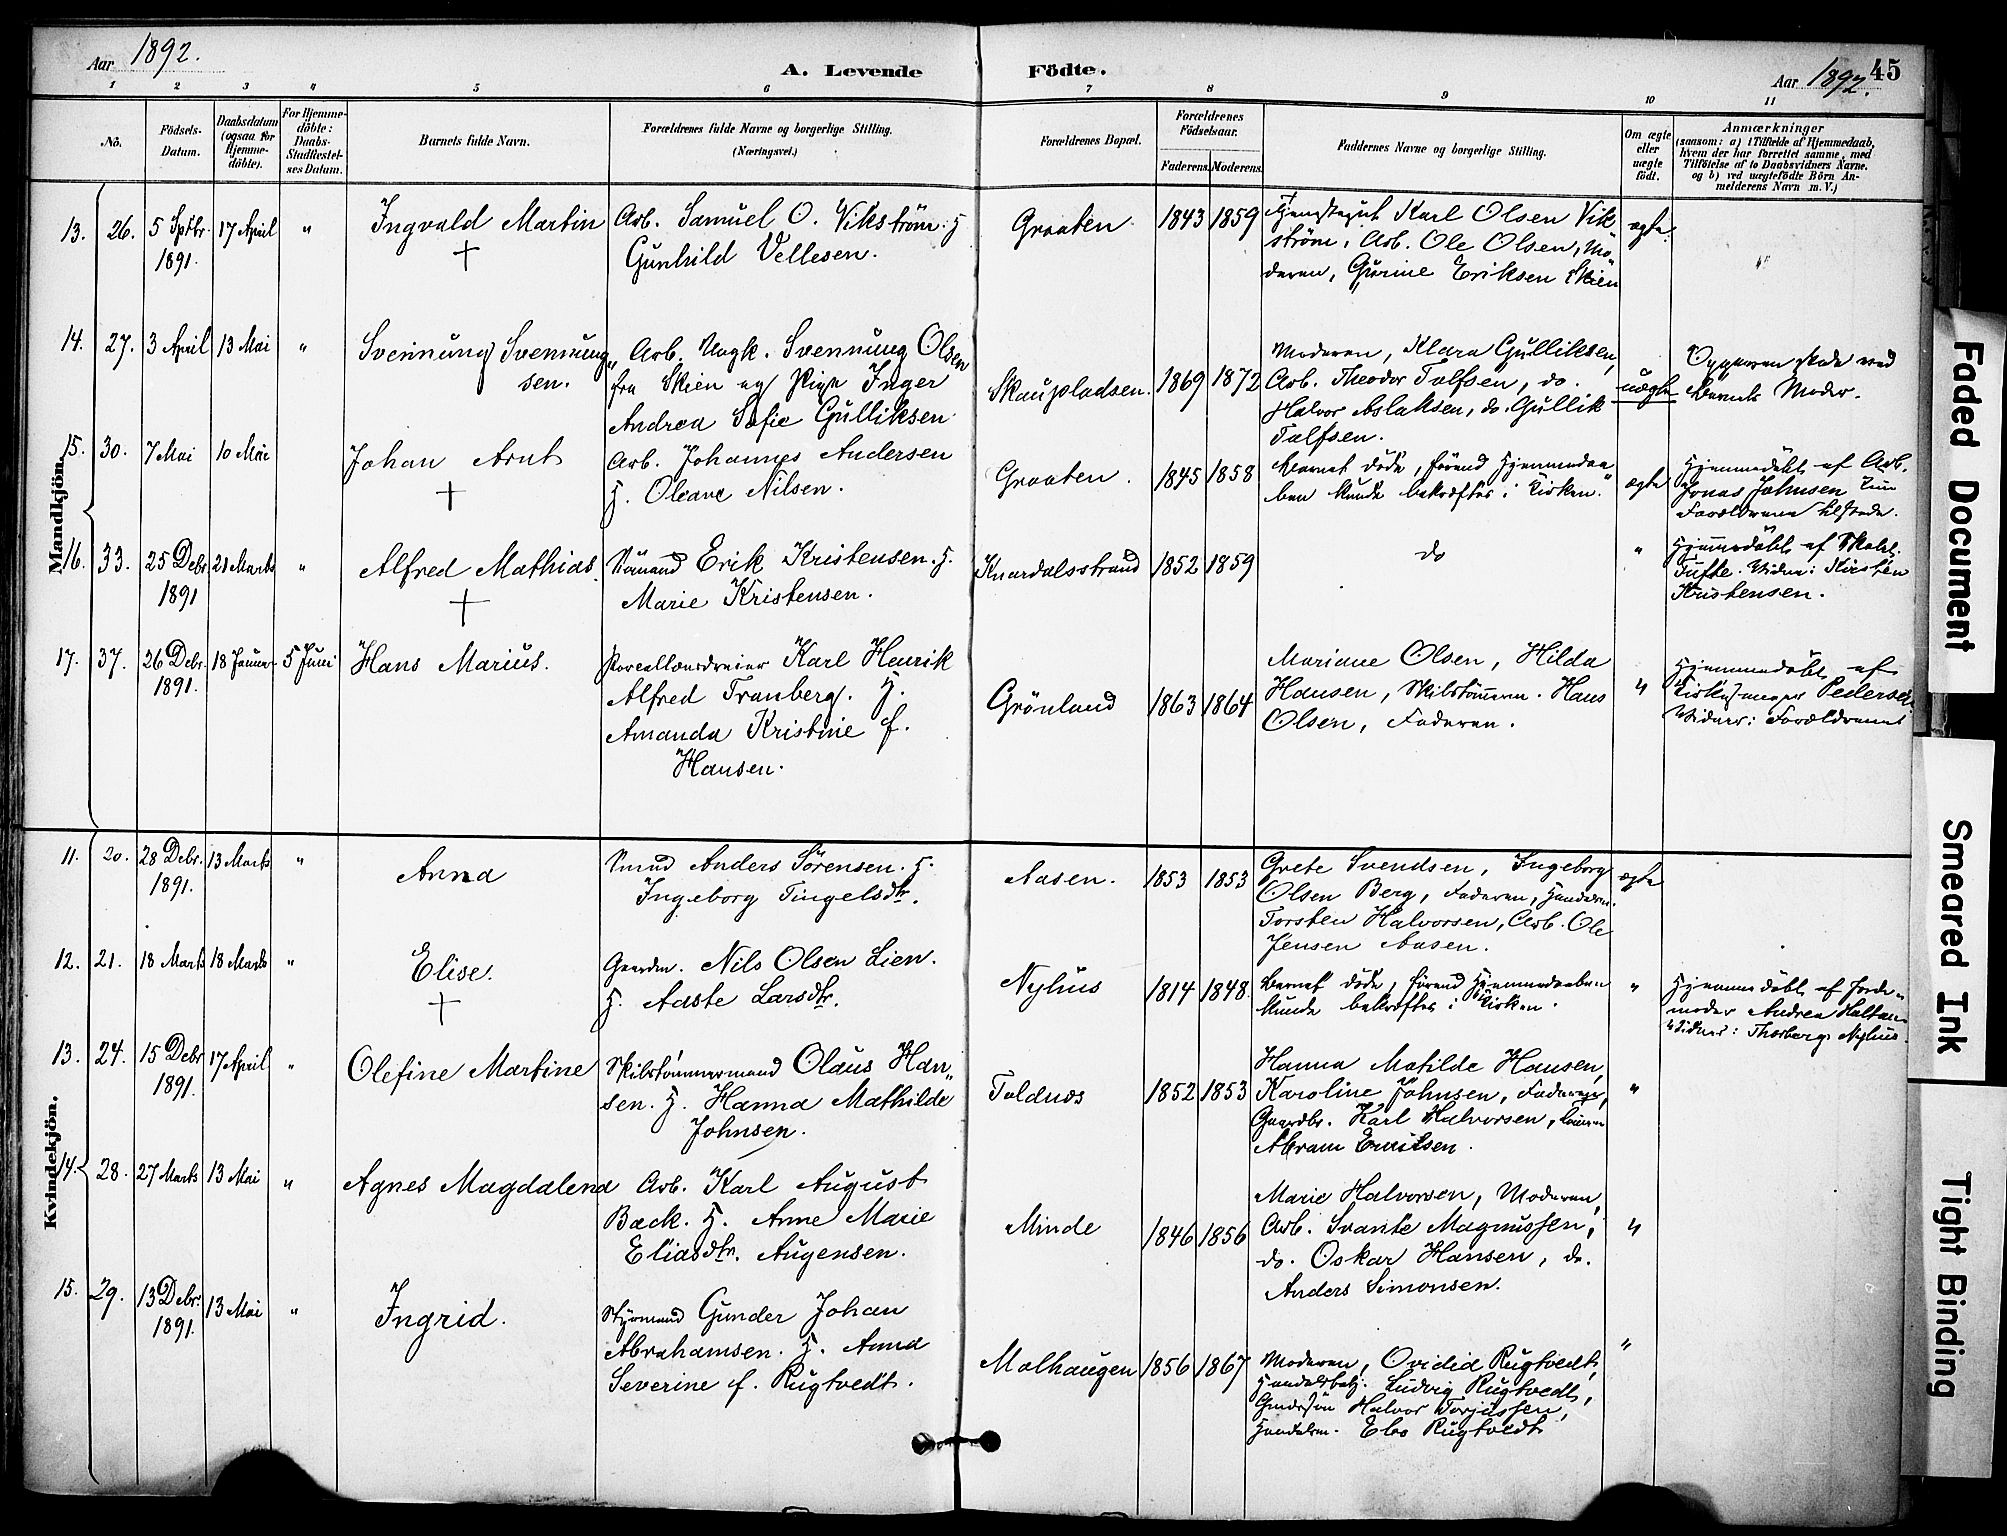 Aar 1892.
A. Levende Födte.
Aar 1892.
45
1 2 3 4 5 6 7 8 9 10 11
No.
Födsels-
Datum.
Daabsdatum
(ogsaa for
Hjemme-
döbte).
For Hjemme-
döbte:
Daabs-
Stadfæstel-
ses Datum.
Barnets fulde Navn.
Forældrenes fulde Navne og borgerlige Stilling.
(Næringsvei.)
Forældrenes Bopæl.
Forældrenes
Födselsaar.
Faderens. Moderens.
Faddernes Navne og borgerlige Stilling.
Om ægte
eller
uægte
født.
Anmærkninger
(saasom: a) i Tilfælde af Hjemmedaab,
hvem der har forrettet samme, med
Tilföielse af to Daabsvidners Navne.
og b) ved uægtefödte Börn An-
melderens Navn m. V.)
Mandkjön.
13. 26. 5 Sptbr. 1891. 17 April " Ingvald Martin +
Arb. Samuel O. Vikström. H
Gunhild Vellesen.
Graaten 1843 1859
Tjenestegut Karl Olsen Vik
ström, Arb. Ole Olsen, Mo
deren, Gurine Eriksen Skien
ægte.
14. 27. 3 April 13 Mai "
Svennung Svennung
sen.
Arb. Ungk. Svennung Olsen
fra Skien og Pige Inger
Andrea Sofie Gulliksen
Skaupladsen. 1869 1872
Moderen, Klara Gulliksen,
Arb. Theodor Tolfsen, do.
Halvor Aslaksen, do. Gullik
Tolfsen.
uægte
Barnets Moder.
15. 30. 7 Mai 10 Mai
Johan Arnt +
Arb. Johannes Andersen
H. Oleane Nilsen.
Graaten. 1845 1858
Barnet döde, förend Hjemmedaa
ben kunde bekræftes i Kirken.
ægte
Hjemmedöbt af Arb.
Jonas Johnsen Kun
Forældrene tilstede.
16. 33. 25 Debr 1891 21 Marts "
Alfred Mathias. +
Erik Kristensen. H.
Marie Kristensen.
Knardalsstrand 1852 1859
do
"
Hjemmedöbt af
Tufte. Vidne: Kirsten
Kristensen.
17. 37. 26 Debr. 1891. 18 Januar 5 Juni
Hans Marius.
Porcellænsdreier Karl Henrik
Alfred Tranberg. H.
Amanda Kristine f.
Hansen.
Grönland 1863 1864
Mariane Olsen, Hilda
Hansen, Skibstömmerm. Hans
Olsen, Faderen.
"
Hjemmedöbt af
Kirkesanger Pedersen
Vidner: Forældrene
Kvindekjön.
11. 20. 28 Debr. 1891. 13 Marts "
Anna
Anders Sörensen. H.
Ingeborg Tingelsdtr.
Aasen. 1853 1853
Grete Svendsen, Ingeborg
Olsen Berg, Faderen, Handelsm.
Torsten Halvorsen, Arb. Ole
Jensen Aasen.
ægte
12. 21. 18 Marts 18 Marts "
Elise. +
Gaardm. Nils Olsen Lien.
H. Aaste Larsdtr.
Nyhus 1814 1848.
Barnet döde, förend Hjemmedaaben
kunde bekræftes i Kirken.
"
Hjemmedöbt af Jorde-
moder Andrea Haltan
Vidner: Thorberg Nyhus.
13. 24. 15 Debr 1891. 17 April "
Olefine Martine
Skibstömmermand Olaus Han
sen. H. Hanna Mathilde
Johnsen.
Toldnæs 1852 1853
Hanna Matilde Hansen,
Karoline Johnsen, Faderen,
Gaardbr. Karl Halvorsen,
Abram
"
14. 28. 27 Marts 13 Mai "
Agnes Magdalena
Arb. Karl August
Back. H. Anne Marie
Eliasdtr. Augensen.
Minde 1846 1856
Marie Halvorsen, Moderen,
Arb. Svante Magnussen,
do. Oskar Hansen, do.
Anders Simonsen.
"
15. 29. 13 Debr. 1891. 13 Mai "
Ingrid.
Styrmand Gunder Johan
Abrahamsen. H. Anna
Severine f. Rugtvedt.
Molhaugen 1856 1867
Moderen, Ovidia Rugtvedt,
Handelsbetj. Ludvig Rugtvedt,
Halvor Torjussen,
Handelsm. Rugtvedt
"
Faded Document
Smeared Ink
Tight Binding